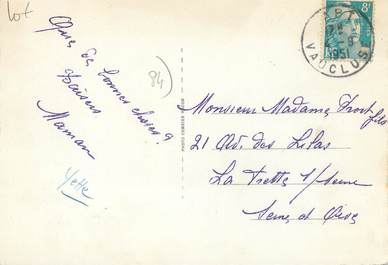 Lot
84
Que de
bonnes choses
baisers
Maman
Yette
APT
1951
VAUCLUSE
8F
Monsieur Madame
fils
21 Av. des Lilas
La Frette s/Seine
Seine et Oise